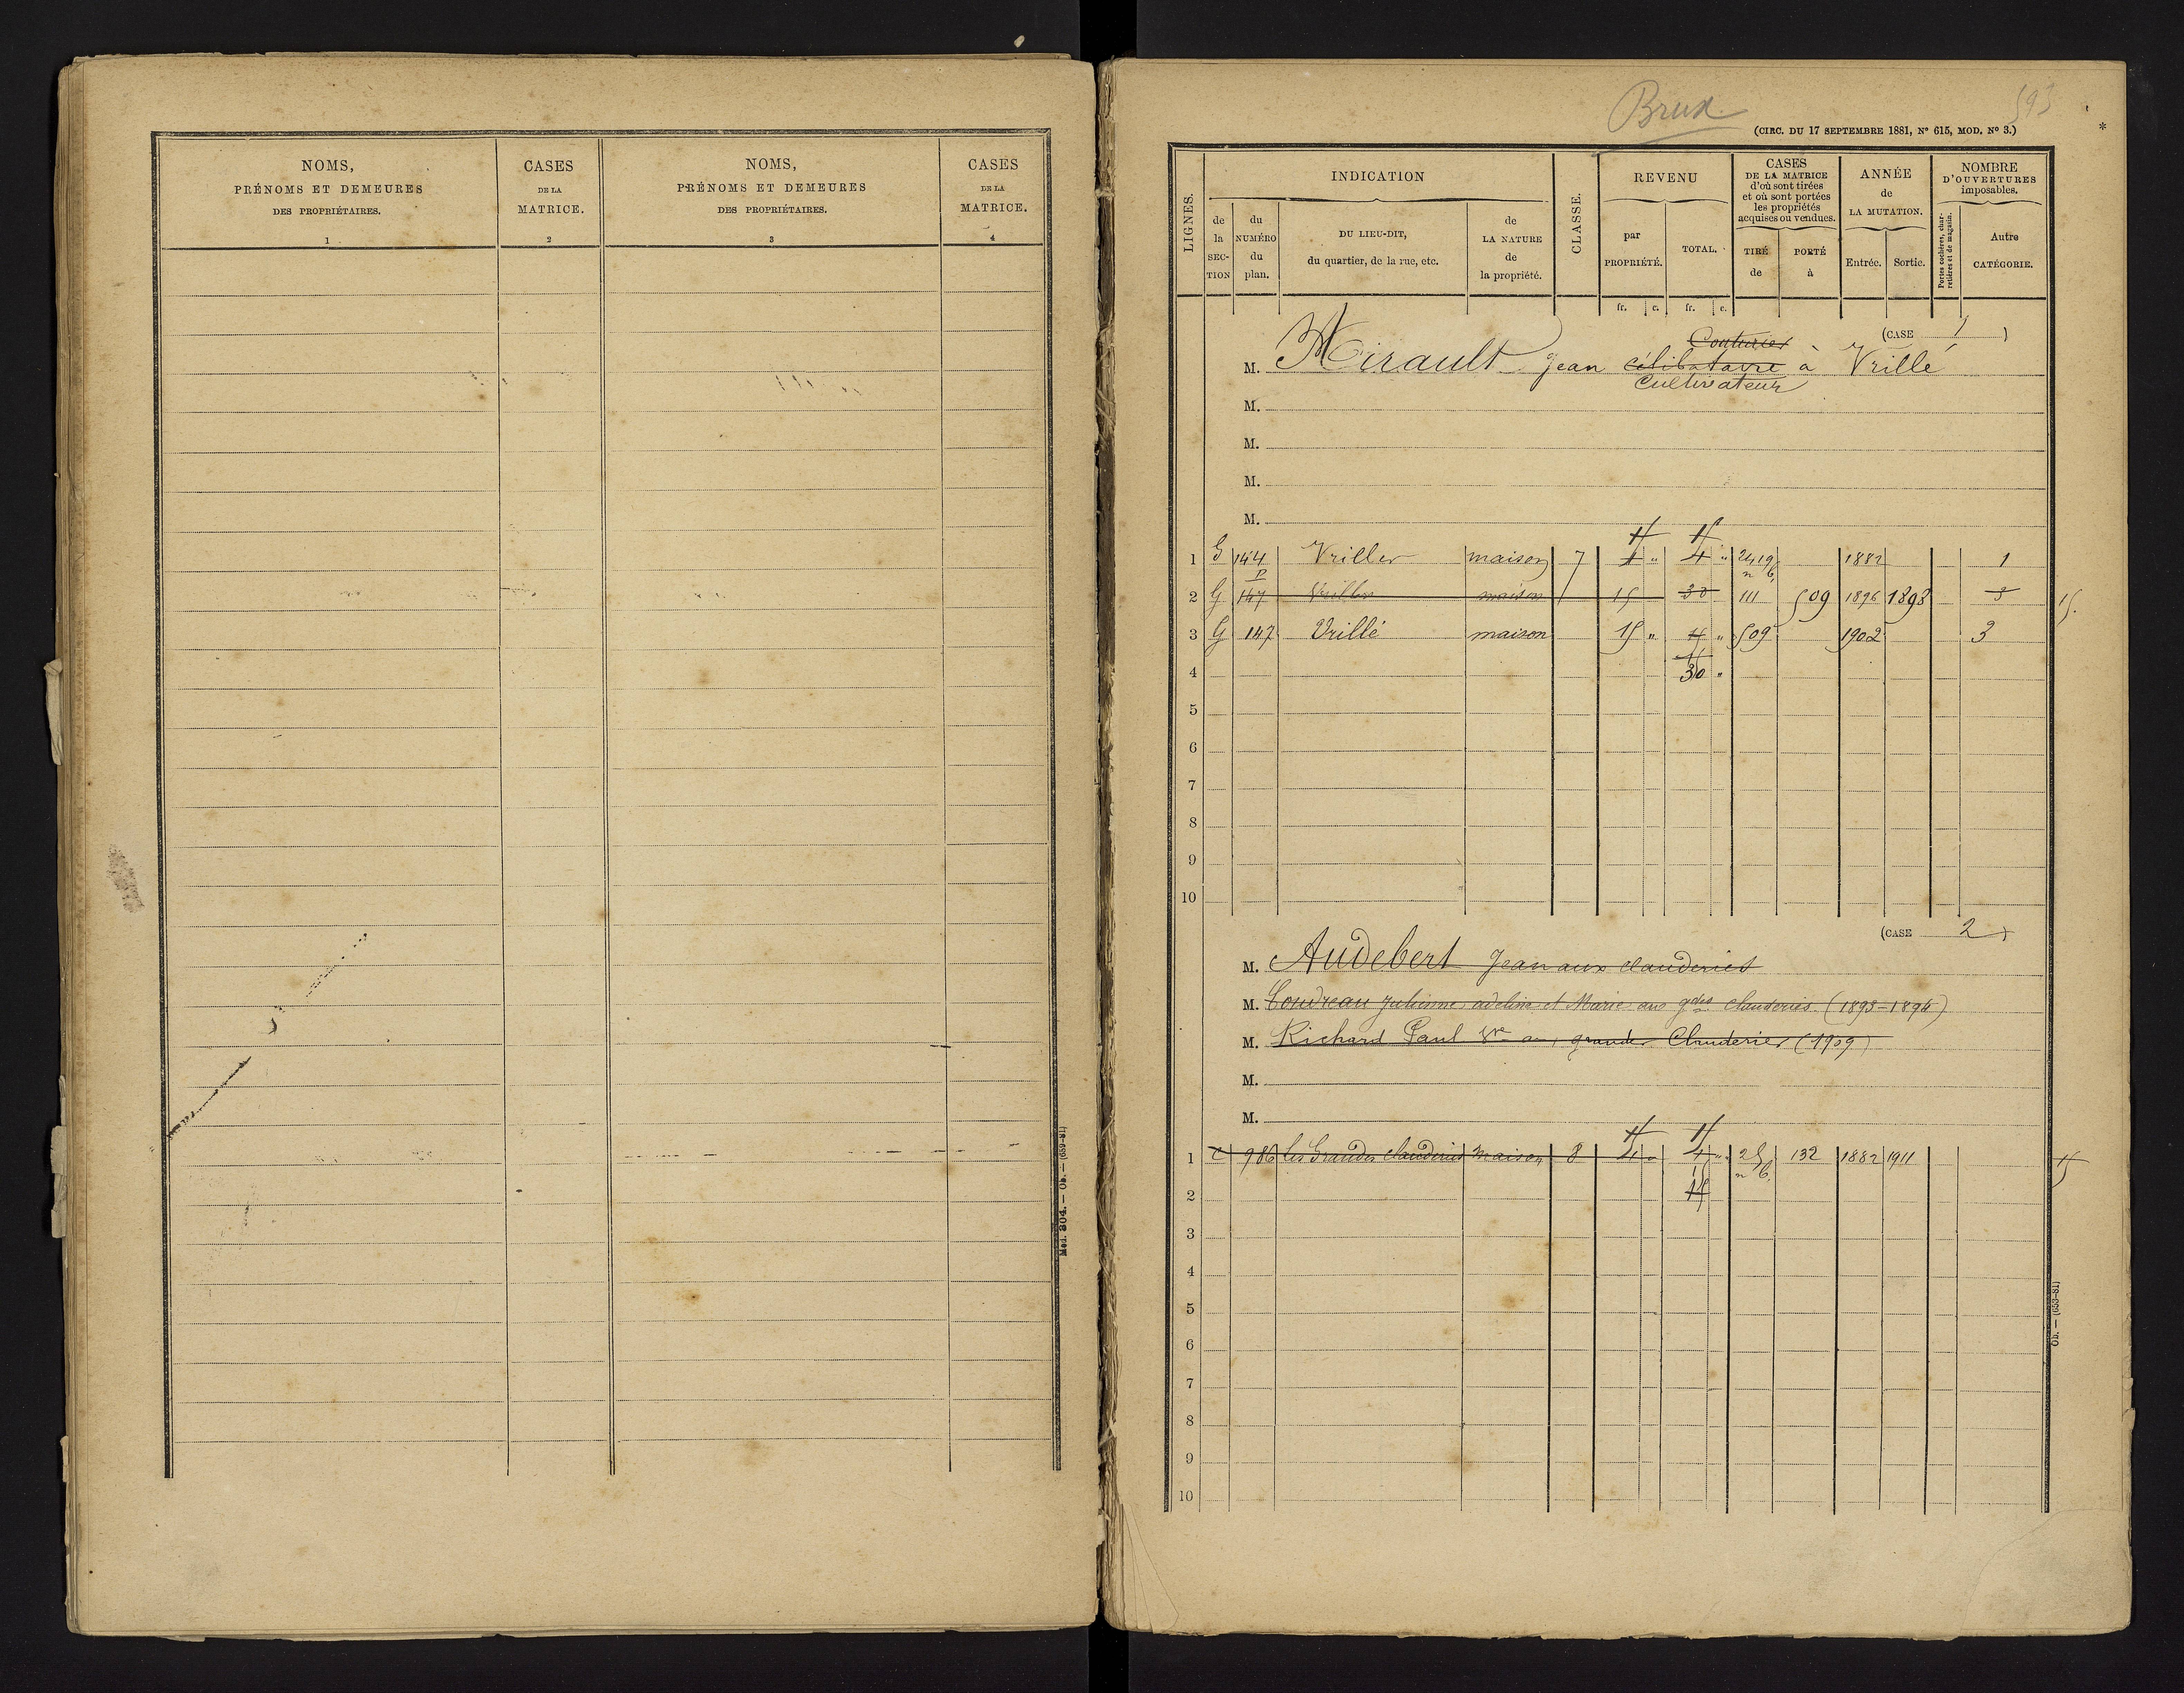 NOMS,
PRÉNOMS ET DEMEURES
DES PROPRIÉTAIRES.
1
CASES
DE LA
MATRICE.
2
NOMS,
PRÉNOMS ET DEMEURES
DES PROPRIÉTAIRES.
3
CASES
DE LA
MATRICE.
4
Mod. 304. — Ob. — (659-81)
Brux
593
(CIRC. DU 17 SEPTEMBRE 1881, N° 615, MOD. N° 3.)
*
LIGNES.
INDICATION
de la SECTION
du NUMÉRO du plan.
DU LIEU-DIT,
du quartier, de la rue, etc.
de LA NATURE de la propriété.
CLASSE.
REVENU
par PROPRIÉTÉ.
TOTAL.
CASES
DE LA MATRICE
d'où sont tirées
et où sont portées
les propriétés
acquises ou vendues.
TIRÉ de
PORTÉ à
ANNÉE
de
LA MUTATION.
Entrée.
Sortie.
NOMBRE
D'OUVERTURES
imposables.
Portes cochères, charretières et de magasin.
Autre CATÉGORIE.
fr. c. fr. c.
(CASE 1)
Couturier
M. Mirault Jean célibataire à Vrillé
Cultivateur
M.
M.
M.
M.
1 G 144 Vriller maison 7 4 " 4 " 2419 1882 1
p n 6
2 G 147 Vriller maison 15 30 111 509 1896 1898 3 15.
3 G 147 Vrillé maison 15 " " 509 1902 3
4 30 "
5
6
7
8
9
10
(CASE 2)
M. Audebert Jean aux clauderies
M. Coudreau Julienne adeline et Marie aux gdes clauderies (1893-1894)
M. Richard Paul grandes Clauderies (1909)
M.
M.
1 C 986 les Grandes clauderies maison 8 4 " 4 " 25 132 1882 1911
n 6
2
3
4
5
6
7
8
9
10
Ob. — (653-81)